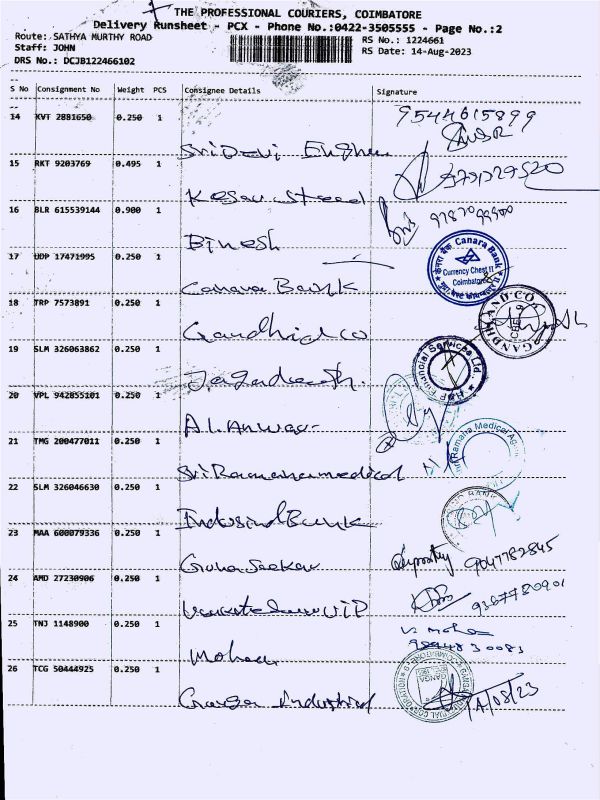 THE PROFESSIONAL COURIERS, COIMBATORE
Delivery Runsheet - PCX - Phone No.:0422-3505555 - Page No.:2
Route: SATHYA MURTHY ROAD RS No.: 1224661
Staff: JOHN RS Date: 14-Aug-2023
DRS No.: DCJB122466102
S No Consignment No Weight PCS Consignee Details Signature
14 KVT 2881650 0.250 1 9544615899
Sri Devi
15 RKT 9203769 0.495 1
Kesav
16 BLR 615539144 0.900 1
Binesh
17 UDP 17471995 0.250 1 Canara Bank
Currency Chest II
Coimbatore
Canara Bank
18 TRP 7573891 0.250 1 GANDHI AND CO
Gandhi & co
19 SLM 326063862 0.250 1 Financial Services Ltd.
Jagadeesh
20 VPL 942855101 0.250 1
Al. Anwar
21 TMG 200477011 0.250 1 Sri Ramana Medical
Sri Ramana medical
22 SLM 326046630 0.250 1 BANK
Indusind Bank
23 MAA 600079336 0.250 1 9047782845
Guna Seekar
24 AMD 27230906 0.250 1 9387780901
VIP
25 TNJ 1148900 0.250 1 V. Mohan
9894830083
Mohan
26 TCG 50444925 0.250 1 GANGA INDUSTRIAL CORPORATION
14/08/23
Ganga Industrial